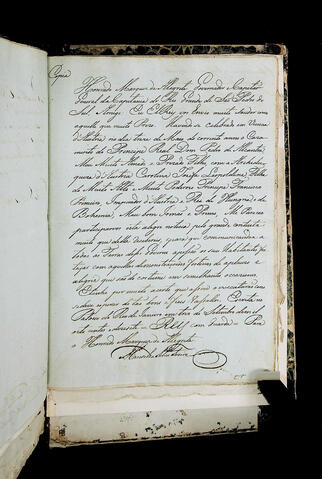 Copia
Honrado Marquez de Alegrete Governador e Capitão
General da Capitania do Rio Grande de São Pedro do
Sul Amigo. Eu El Rey vos Envio muito saudar como
aquelle que muito Prezo. Havendo-se Celebrado em Vienna
d'Austria no dia treze de Maio do corrente anno o Casa
mento do Principe Real Dom Pedro de Alcantara
Meu Muito Amado e Prezado Filho, com a Archidu
queza d'Austria Carolina Jozefa Leopoldina, Filha
do Muito Alto e Muito Poderozo Principe Francisco
Primeiro, Imperador d'Austria, e Rey de Hungria, e de
Bohemia, Meu bom Irmão e Primo, Me Pareceo
participarvos esta alegre noticia pelo grande contenta
mento que della recebereis, e para que communicandoa a
todas as Terras dessa vossa Capitania os seus Habitantes fa
ção com aquellas demonstrações festivas de applauso e
alegria que são do costume em semelhantes occasioens
de vós e de tão bons e fieis Vassallos. Escrita no
Palacio do Rio de Janeiro em de Setembro de mil
oito centos e dezesete = REY = com Guarda = Para
o Honrado Marquez de Alegrete